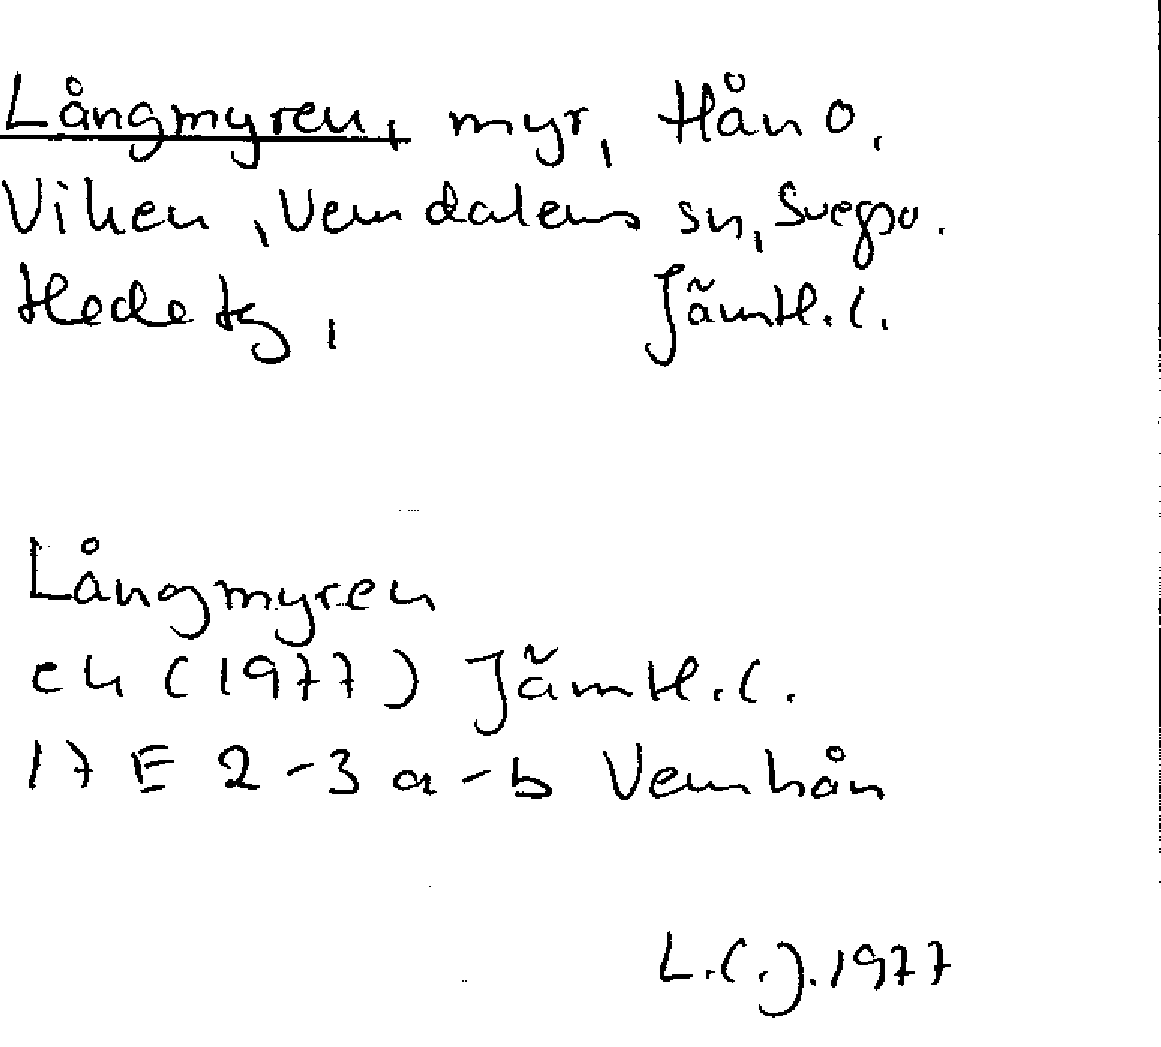 Långmyren, myr, Hån o.
Viken, Vemdalens sn, Svegs o.
Hede tg, Jämtl.l.
Långmyren
ek (1977) Jämtl.l.
17 E 2-3 a-b Vemhån
L.C.J. 1977